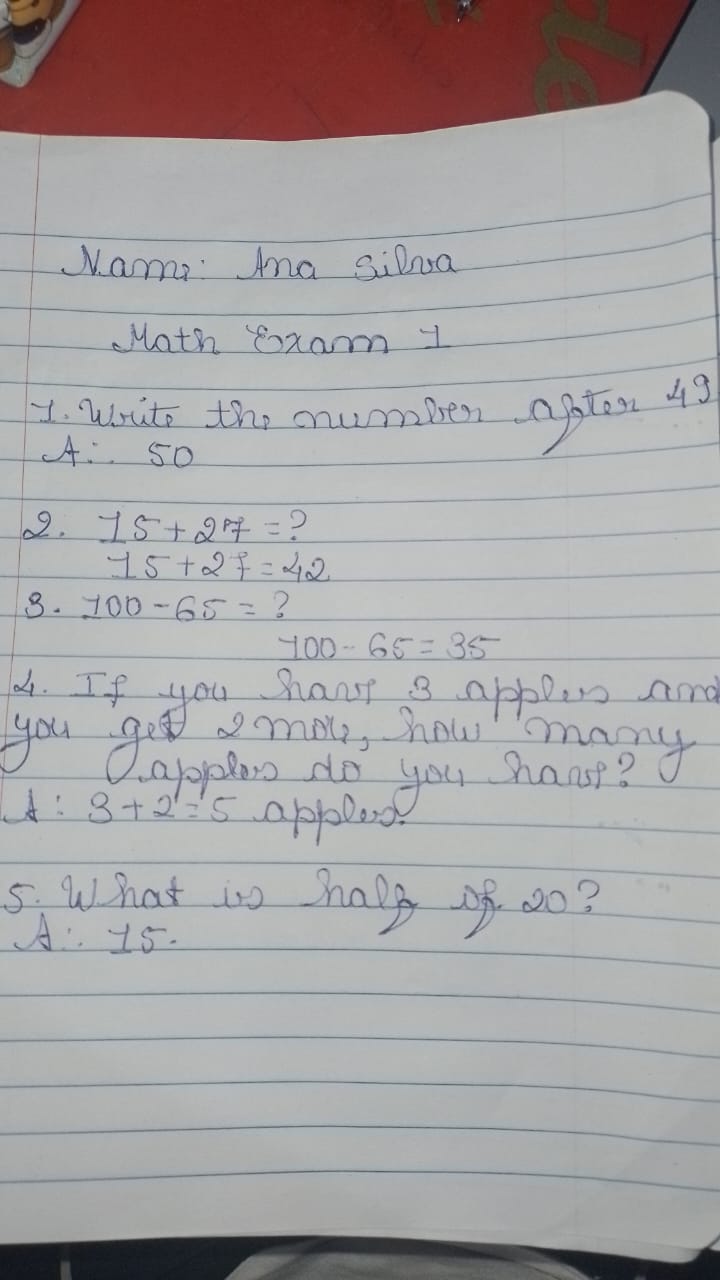 Name: Ana Silva
Math Exam 1
1. Write the number after 49
A: 50
2. 15+27=?
15+27=42
3. 100-65=?
100-65=35
4. If you have 3 apples and
you get 2 more, how many
apples do you have?
A: 3+2=5 apples.
5. What is half of 20?
A: 15.